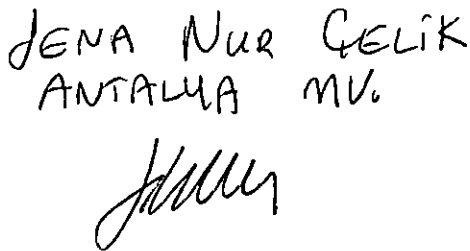 SENA NUR ÇELİK
ANTALYA MV.